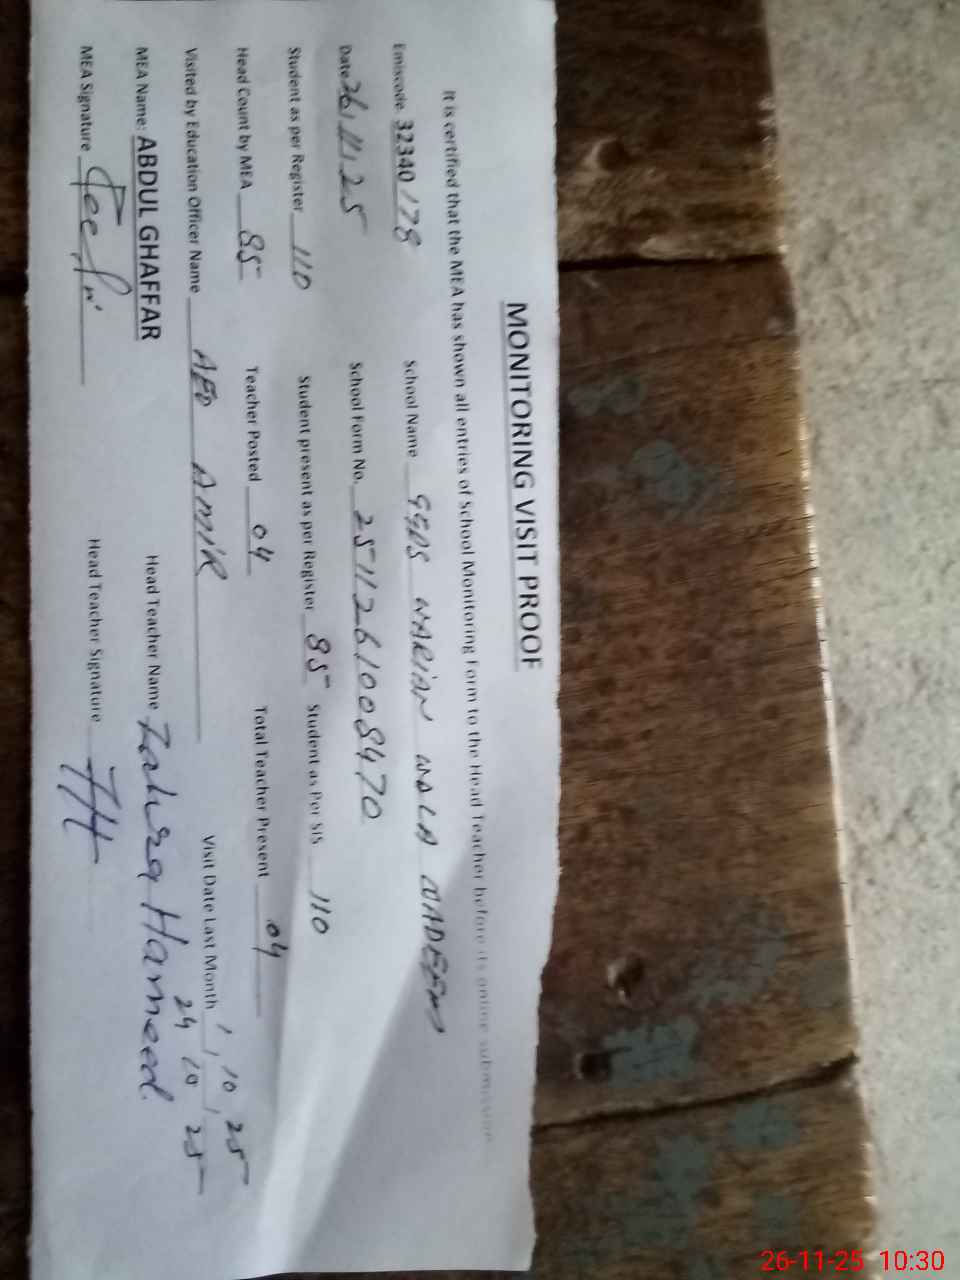 MONITORING VISIT PROOF
It is certified that the MEA has shown all entries of School Monitoring Form to the Head Teacher before its online submission
Emiscode 32340178 School Name GGPS WARIAN WALA NADEEM
Date 26/11/25 School Form No. 2511261008470
Student as per Register 110 Student present as per Register 85 Student as Per SIS 110
Head Count by MEA 85 Teacher Posted 04 Total Teacher Present 04
Visited by Education Officer Name AEO AMIR Visit Date Last Month 1, 10, 25
24 10 25
MEA Name: ABDUL GHAFFAR Head Teacher Name Zahra Hameed
MEA Signature Head Teacher Signature ZH
26-11-25 10:30